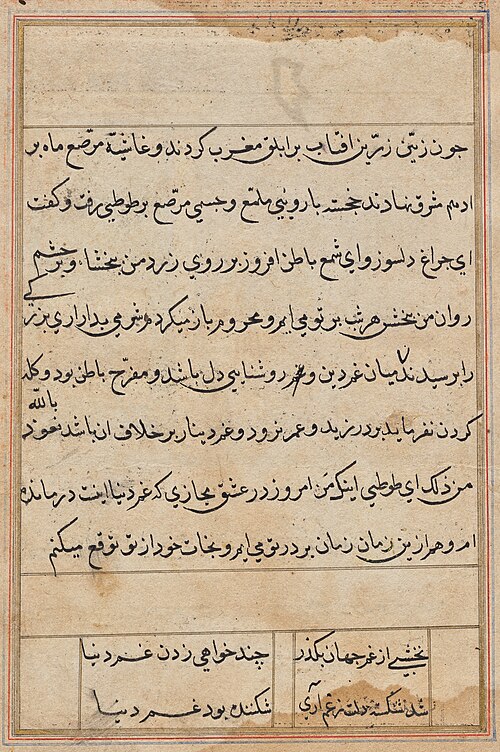 چون زین زرین افتاب بر ابلق مغرب کردند و غاشیه مرصع ماه بر
ادهم مشرق نهادند خجسته با رویی ملمع و جسمی مرصع بر طوطی رفت و کفت
ای چراغ دلسوز و ای شمع باطن افروز بر روی زرد من ببخشا و بر چشم
روان من ببخش هر شب بر تو می ایم و محروم باز میکردم
را برسیدند میان غم دین و غم روشنایی دل باشد و مفرح باطن بود و کله
کردن نفرماید و عمر نرود و غم دنیا بر خلاف ان باشد نعوذ بالله
من ذلک ای طوطی اینک من امروز در عشق مجازی که غم دنیا اینست درمانده
ام و هم ازین زمان زمان بر در تو می ایم و نجات خود از تو توقع میکنم
نخشبی از غم جهان بکذر چند خواهی زدن غم دنیا
شد شکسته دلت ز غم آری شکننده بود غم دنیا